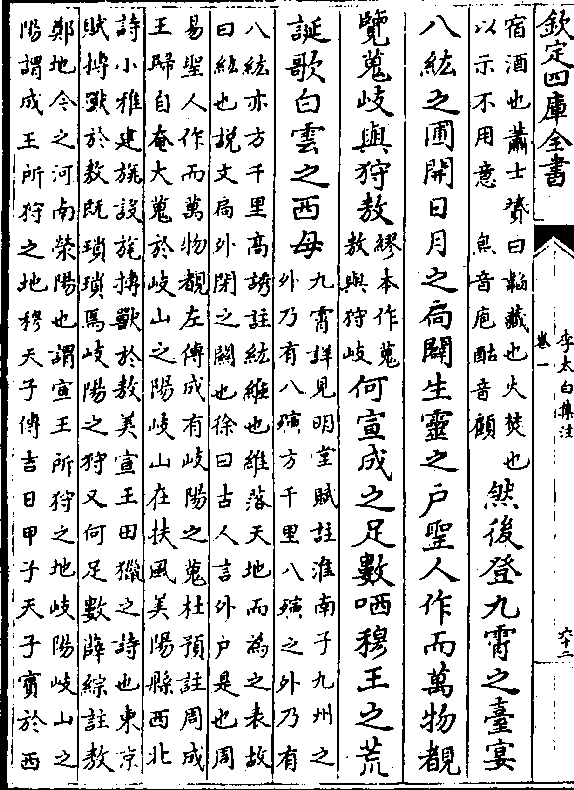 欽定四庫全書
李太白集注
卷一
六十二
宿酒也蕭士贇曰韜藏也火焚也
以示不用意 炰音庖酤音顧
然後登九霄之臺宴
八紘之圃開日月之扃闢生靈之户聖人作而萬物覩
覽蒐岐與狩敖
繆本作蒐
敖與狩岐
何宣成之足數哂穆王之荒
誕歌白雲之西母
九霄詳見明堂賦註淮南子九州之
外乃有八殥方千里八殥之外乃有
八紘亦方千里高誘註紘維也維落天地而為之表故
曰紘也説文扃外閉之關也徐曰古人言外户是也周
易聖人作而萬物覩左傳成有岐陽之蒐杜預註周成
王歸自奄大蒐於岐山之陽岐山在扶風美陽縣西北
詩小雅建旐設旄搏獸於敖美宣王田獵之詩也東京
賦搏獸於敖既瑣瑣焉岐陽之狩又何足數薛綜註敖
鄭地今之河南滎陽也謂宣王所狩之地岐陽岐山之
陽謂成王所狩之地穆天子傳吉日甲子天子賓於西